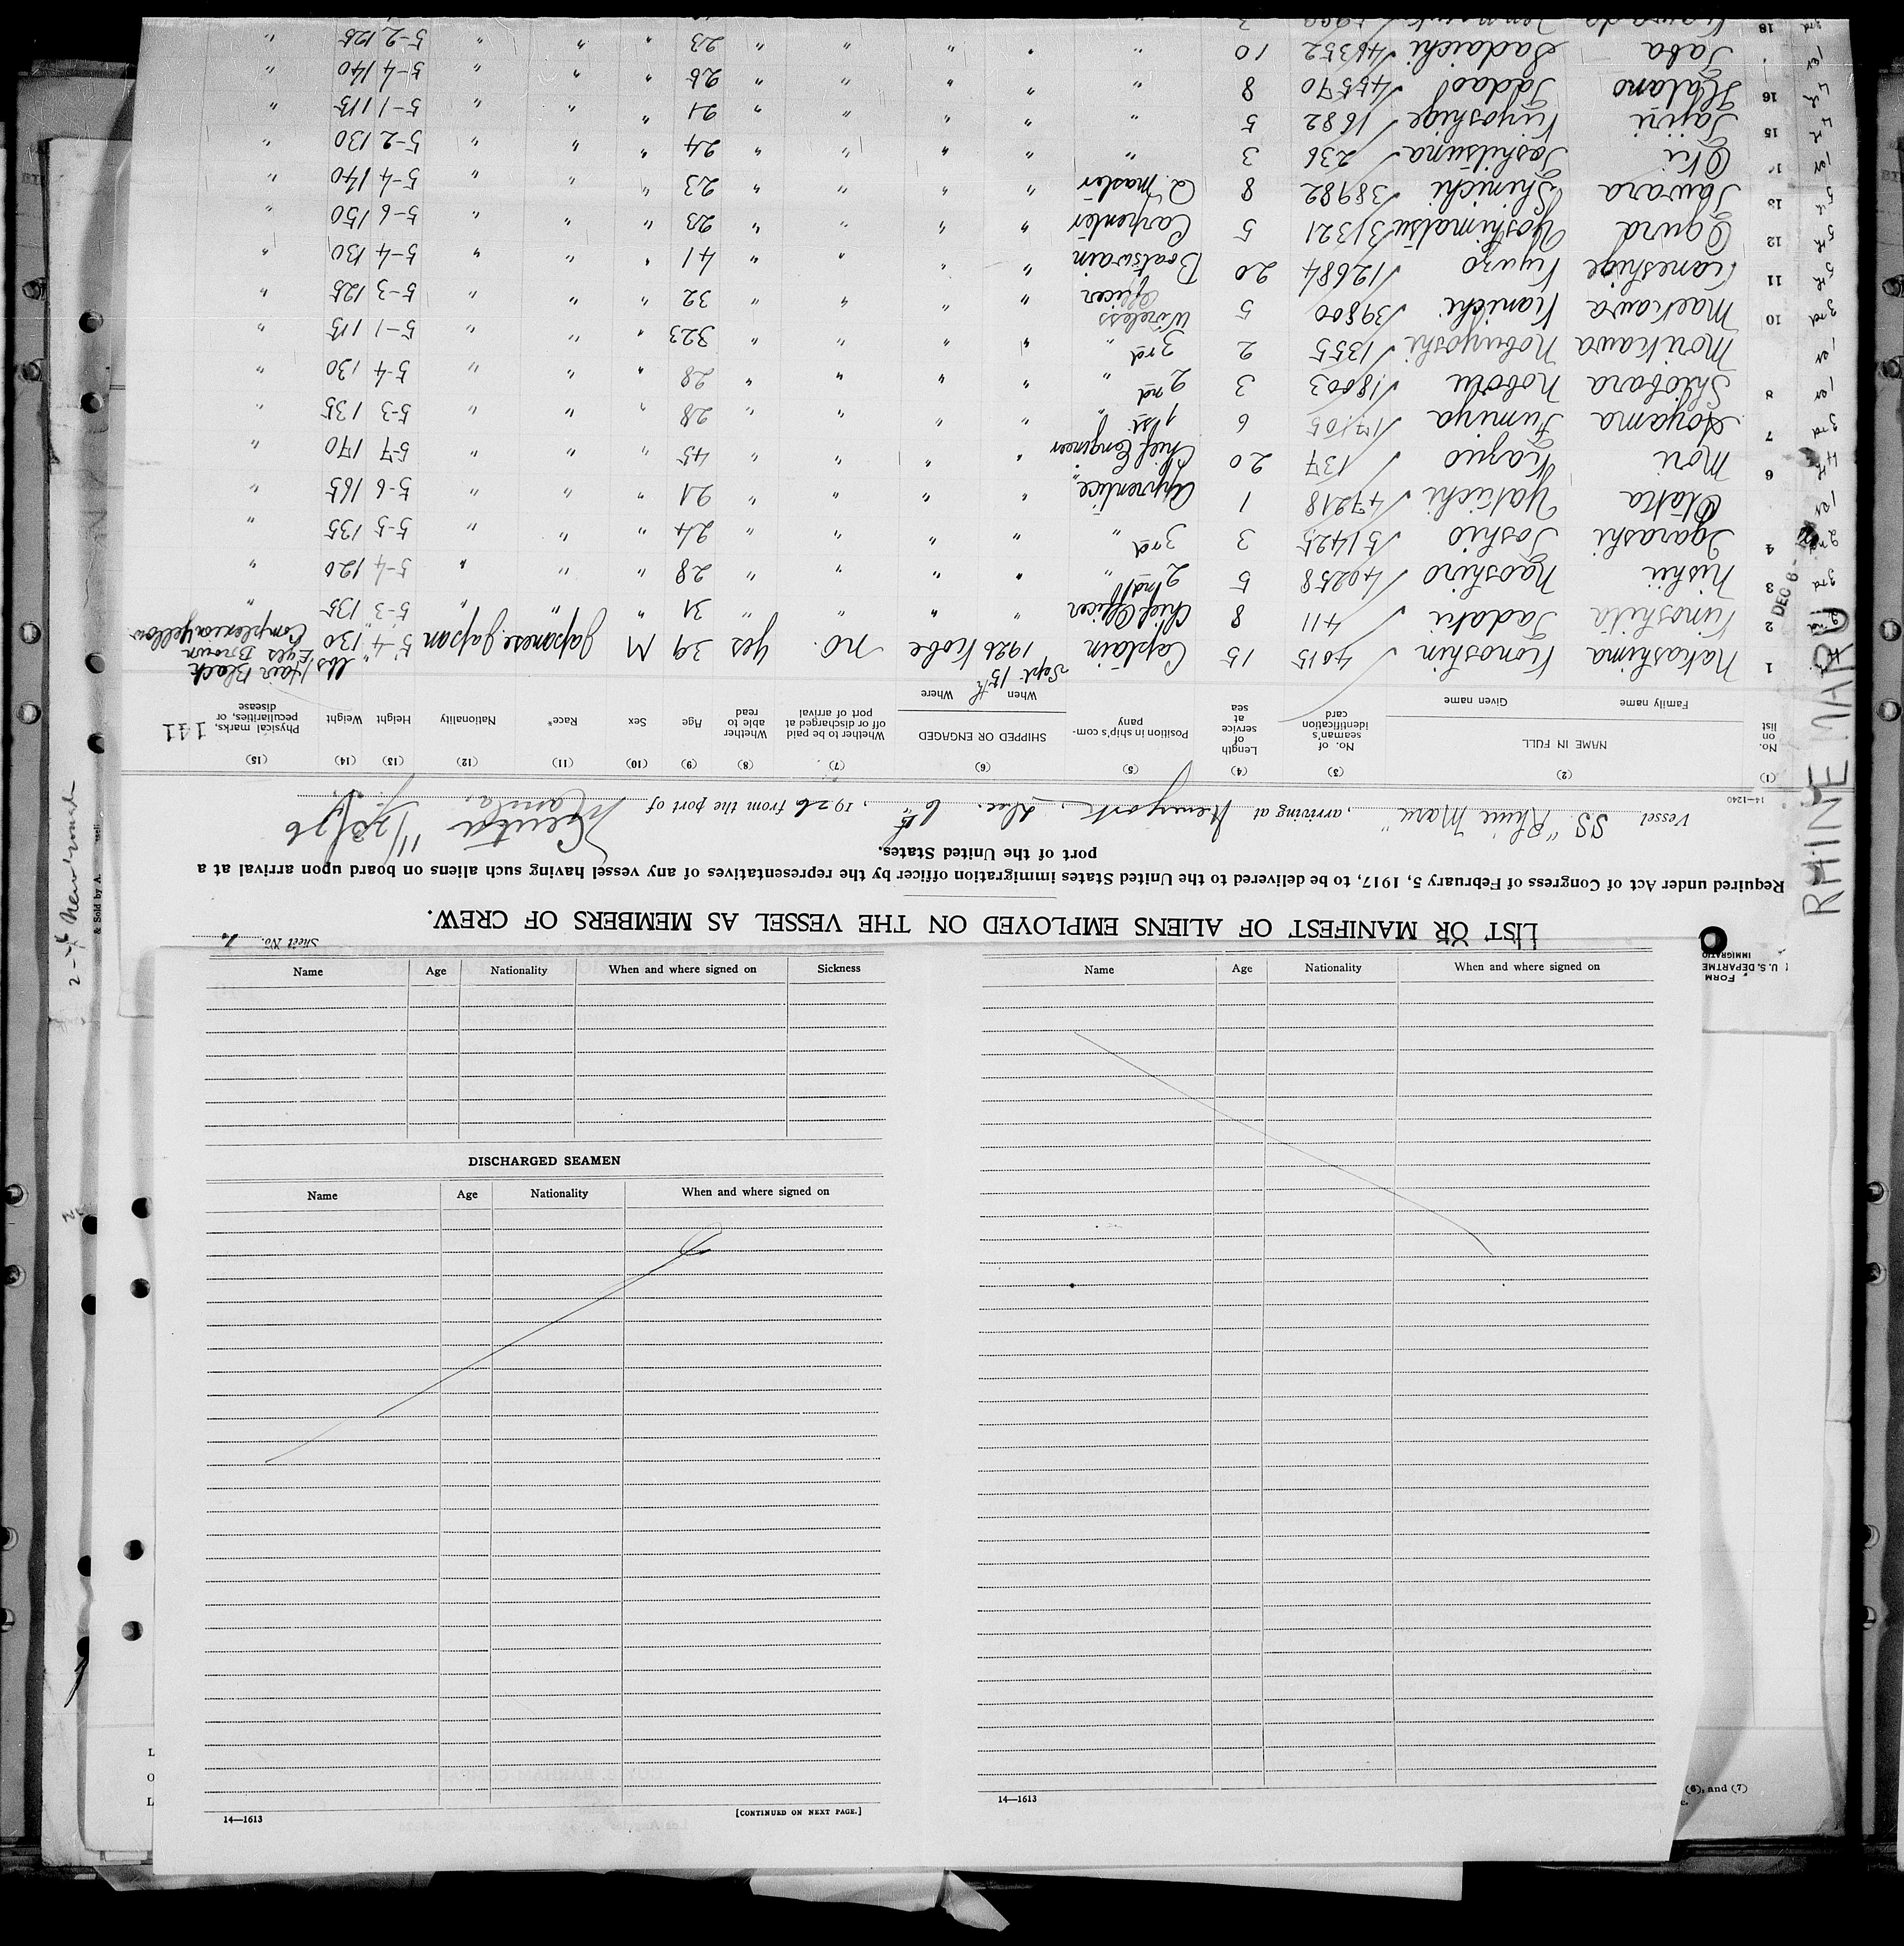 LIST OR MANIFEST OF ALIENS EMPLOYED ON THE VESSEL AS MEMBERS OF CREW.
Sheet No. 1.
FORM
U. S. DEPARTME
IMMIGRATIO
Required under Act of Congress of February 5, 1917, to be delivered to the United States immigration officer by the representatives of any vessel having such aliens on board upon arrival at a
port of the United States.
Vessel SS. "Rhine Maru", arriving at Newyork, Dec. 6th, 1926 from the port of Manila,
11/23/26
14—1240
RHINE MARU
DEC 6 -
(1) (2) (3) (4) (5) (6) (7) (8) (9) (10) (11) (12) (13) (14) (15)
No. on list NAME IN FULL Family name Given name No. of seaman's identification card Length of service at sea Position in ship's company SHIPPED OR ENGAGED When Where Whether to be paid off or discharged at port of arrival Whether able to read Age Sex Race* Nationality Height Weight Physical marks, peculiarities, or disease
141
1 Nakashima Konoshin 4015 15 Captain Sept. 15th 1926 Kobe no. yes 39 M Japanese Japan 5'-4" 130 lbs Hair Black Eyes Brown Complexion yellow
2 Kinoshita Tadaki 411 8 Chief Officer " " " " 31 " " " 5-3 135 "
3 Nishii Naoshiro 40258 5 2nd " " " " " 28 " " " 5-4 126 "
4 Igarashi Toshio 51425 3 3rd " " " " " 24 " " " 5-5 135 "
Otaka Yakichi 47218 1 Apprentice " " " " " 21 " " " 5-6 165 "
6 Mori Kazuo 137 20 Chief Engineer " " " " 45 " " " 5-7 170 "
7 Aoyama Fumiya 17105 6 1st " " " " " 28 " " " 5-3 135 "
8 Shiobara Noboru 18003 3 2nd " " " " " 28 " " " 5-4 130 "
Morikawa Nobuyoshi 1355 2 3rd " " " " " 323 " " " 5-1 115 "
10 Maekawa Kanichi 39800 5 Wireless Officer " " " " 32 " " " 5-3 125 "
11 Kaneshige Kyuzo 12684 20 Boatswain " " " " 41 " " " 5-4 130 "
12 Ogura Yoshimatsu 31321 5 Carpenter " " " " 23 " " " 5-6 150 "
13 Tawara Shinichi 38982 8 Q. Master " " " " 23 " " " 5-4 140 "
Oki Toshitsuna 236 3 " " " " " 24 " " " 5-2 130 "
15 Tajiri Kiyoshige 1682 5 " " " " " 21 " " " 5-1 115 "
16 Hatano Tadao 45570 8 " " " " " 26 " " " 5-4 140 "
Taba Sadaichi 46352 10 " " " " " 23 " " " 5-2 125 "
18
Name Age Nationality When and where signed on Sickness
DISCHARGED SEAMEN
Name Age Nationality When and where signed on
14—1613 [CONTINUED ON NEXT PAGE.]
Name Age Nationality When and where signed on
14—1613
(6), and (7)
& Sold by A.